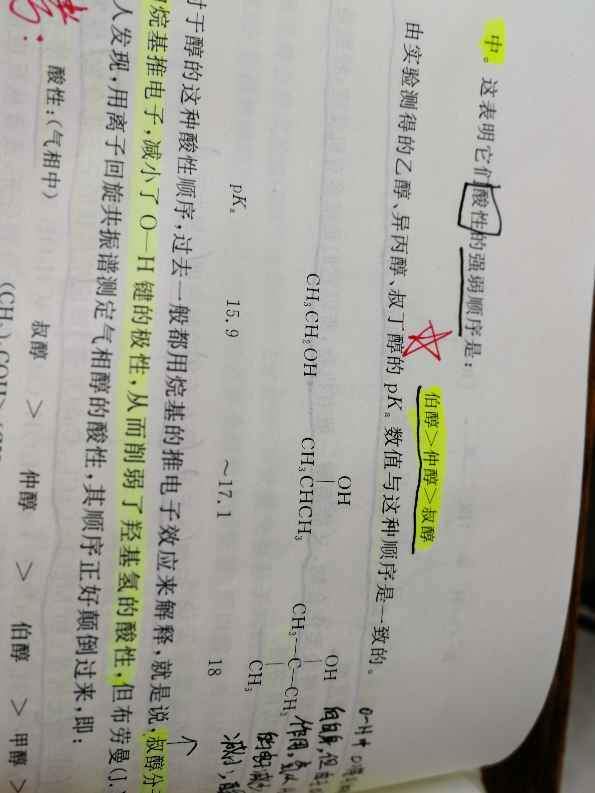 中。这表明它们酸性的强弱顺序是：
伯醇＞仲醇＞叔醇
由实验测得的乙醇、异丙醇、叔丁醇的 pKₐ 数值与这种顺序是一致的。
OH OH
CH₃CH₂OH CH₃CHCH₃ CH₃—C—CH₃
CH₃
pKₐ 15.9 ～17.1 18
于醇的这种酸性顺序，过去一般都用烷基的推电子效应来解释，就是说，叔醇分
烷基推电子，减小了 O—H 键的极性，从而削弱了羟基氢的酸性，但布劳曼(J.
人发现，用离子回旋共振谱测定气相醇的酸性，其顺序正好颠倒过来，即：
酸性：(气相中) 叔醇 ＞ 仲醇 ＞ 伯醇 ＞ 甲醇 ＞
O-H中
作用
减小